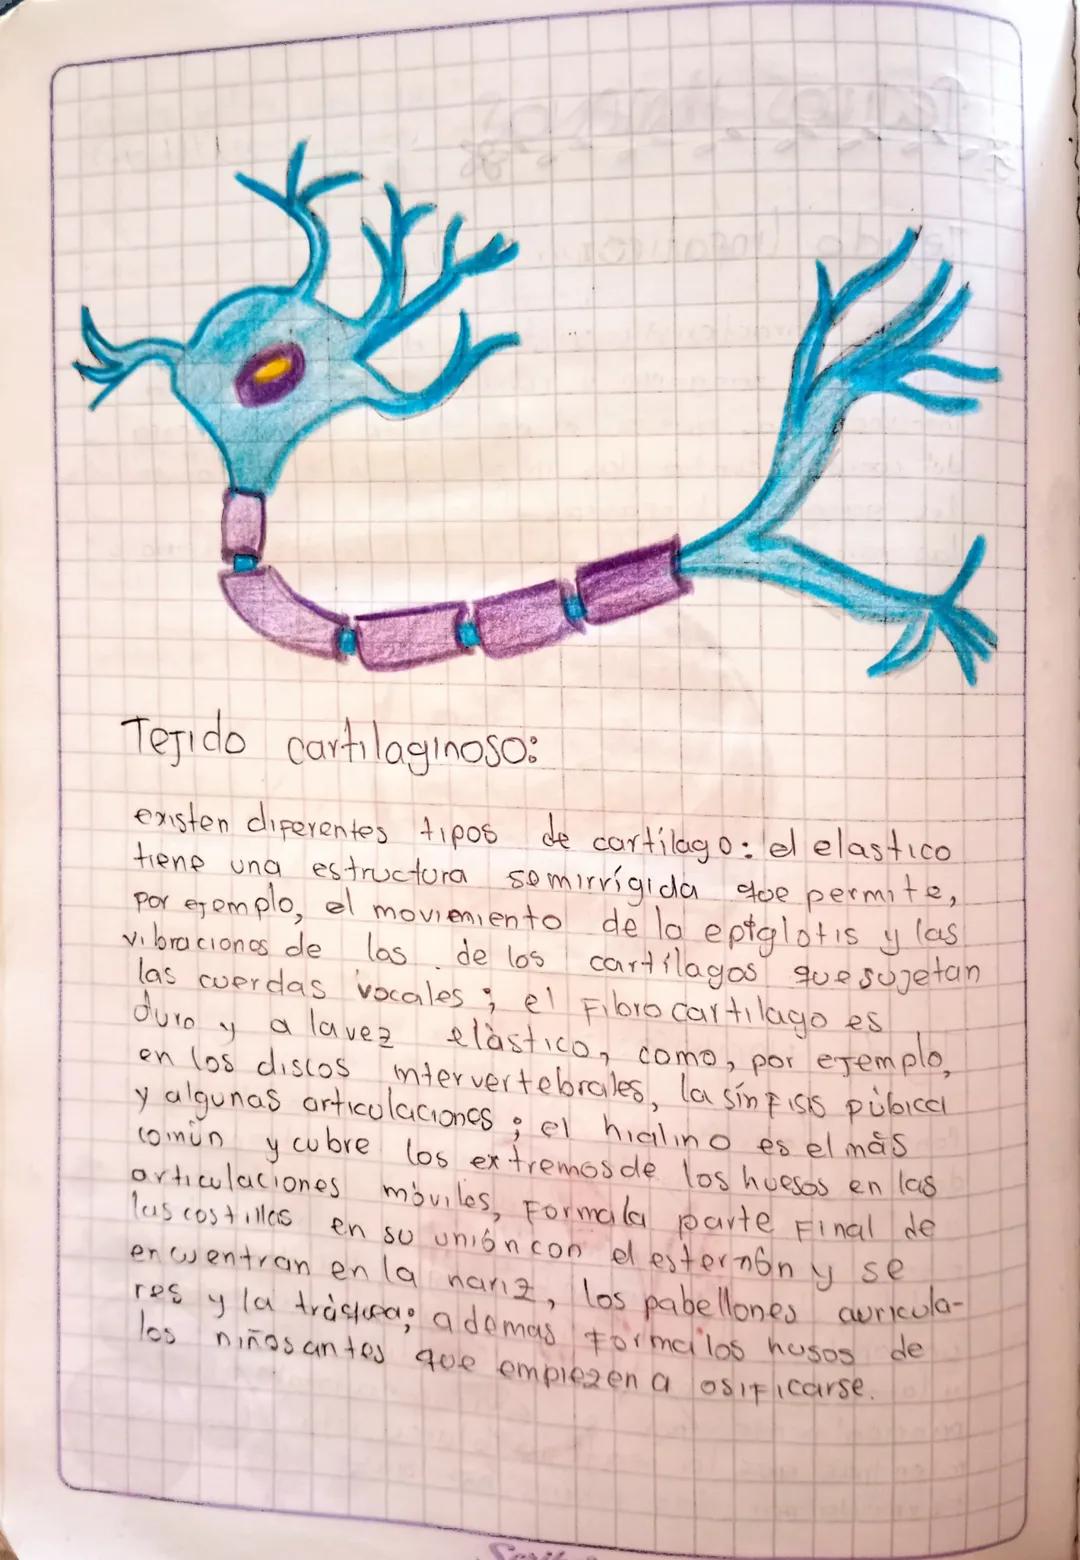 Tejido cartilaginoso:
existen diferentes tipos de cartílago: el elastico
tiene una estructura semirrígida que permite,
por ejemplo, el movimiento de la epiglotis y las
vibraciones de las de los cartílagos que sujetan
las cuerdas vocales; el Fibrocartilago es
duro y a la vez elàstico, como, por ejemplo,
en los discos intervertebrales, la sínfisis púbica
y algunas articulaciones; el hialino es el más
común y cubre los extremos de los huesos en las
articulaciones móviles, Forma la parte Final de
las costillas en su unión con el esternón y se
encuentran en la nariz, los pabellones auricula-
res y la tráquea; ademas forma los husos de
los niños antes que empiezen a osificarse.